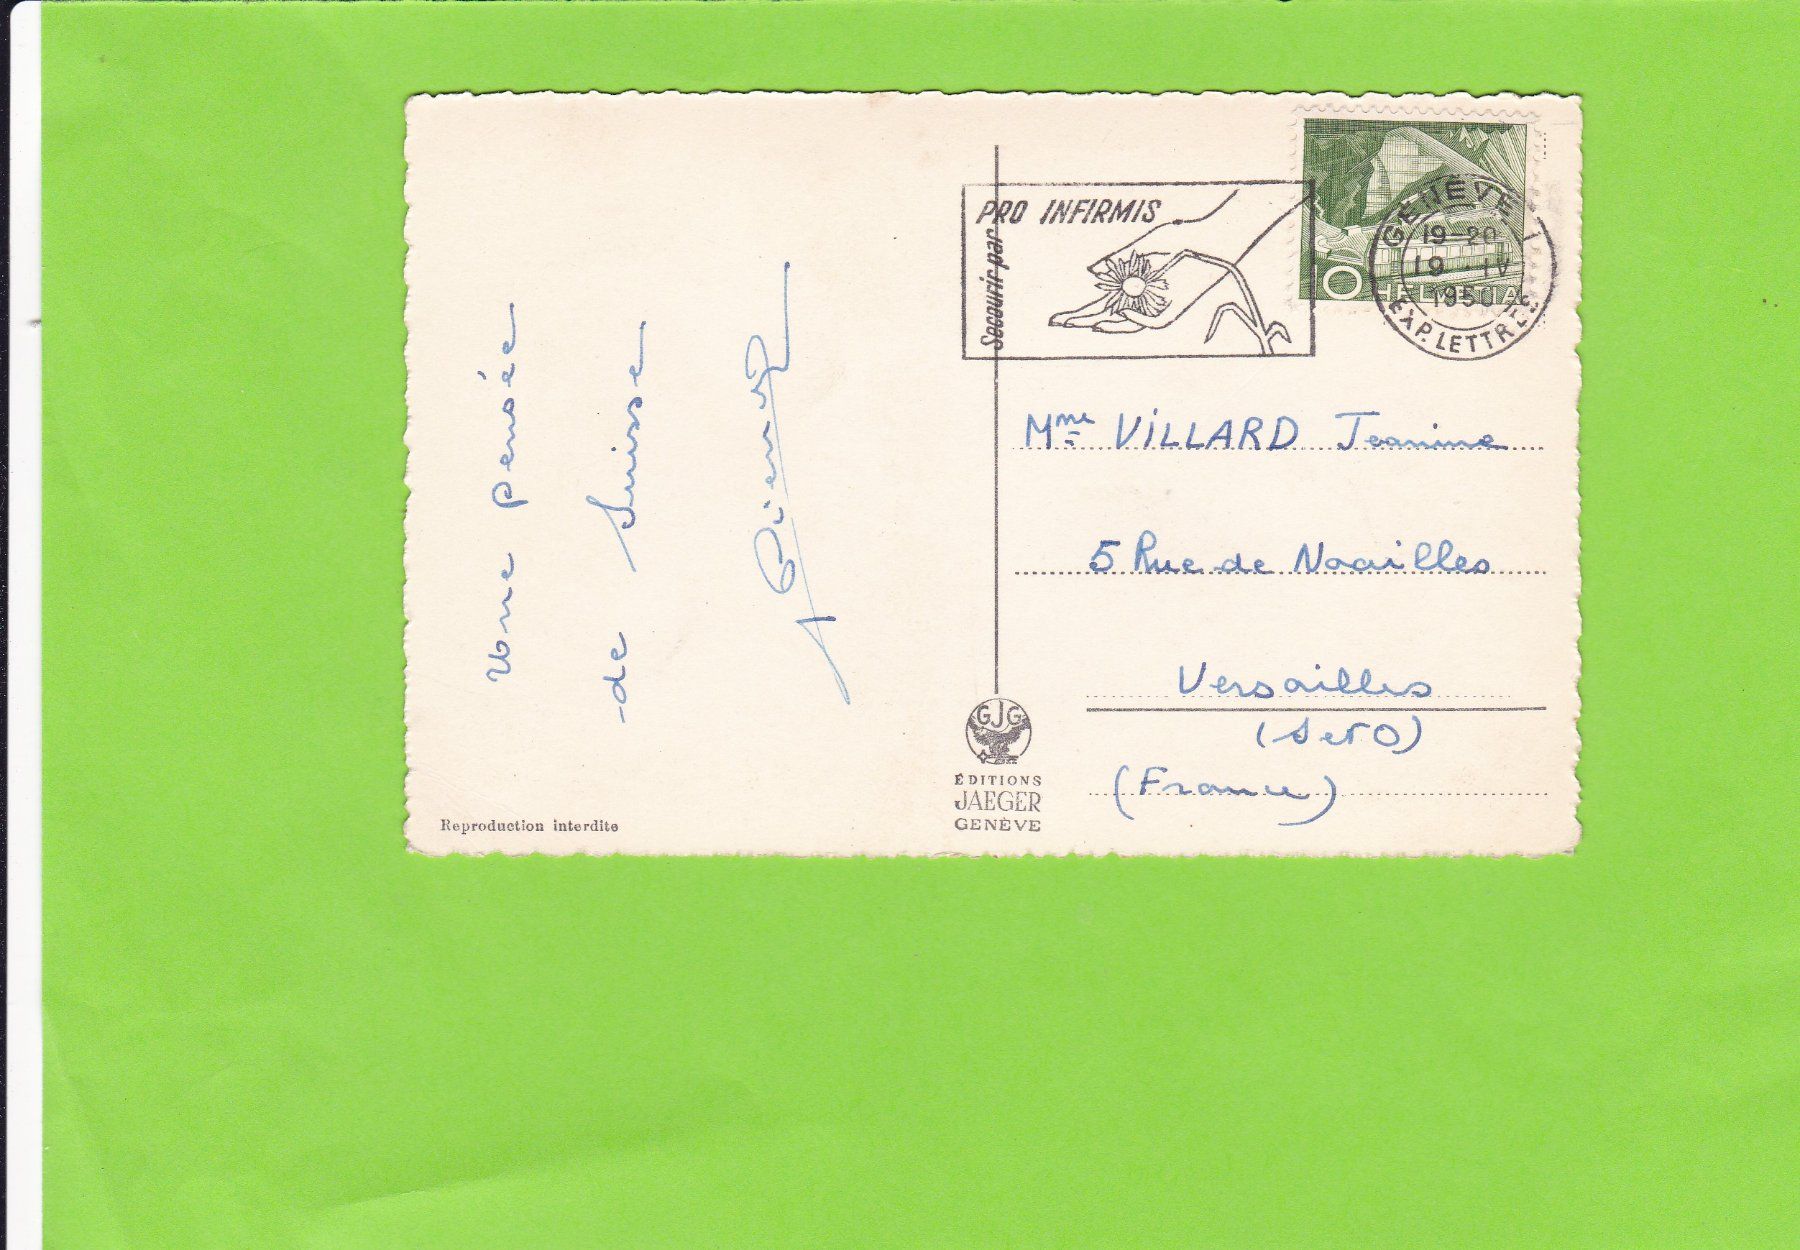 Une pensée
de Suisse
Pierre
Reproduction interdite
PRO INFIRMIS
Secourir par
GENÈVE 1
19-20
19 IV
1950
EXP. LETTRES
10
HELVETIA
Mme VILLARD Jeanine
5 Rue de Noailles
Versailles
(S et O)
(France)
GJG
ÉDITIONS
JAEGER
GENÈVE